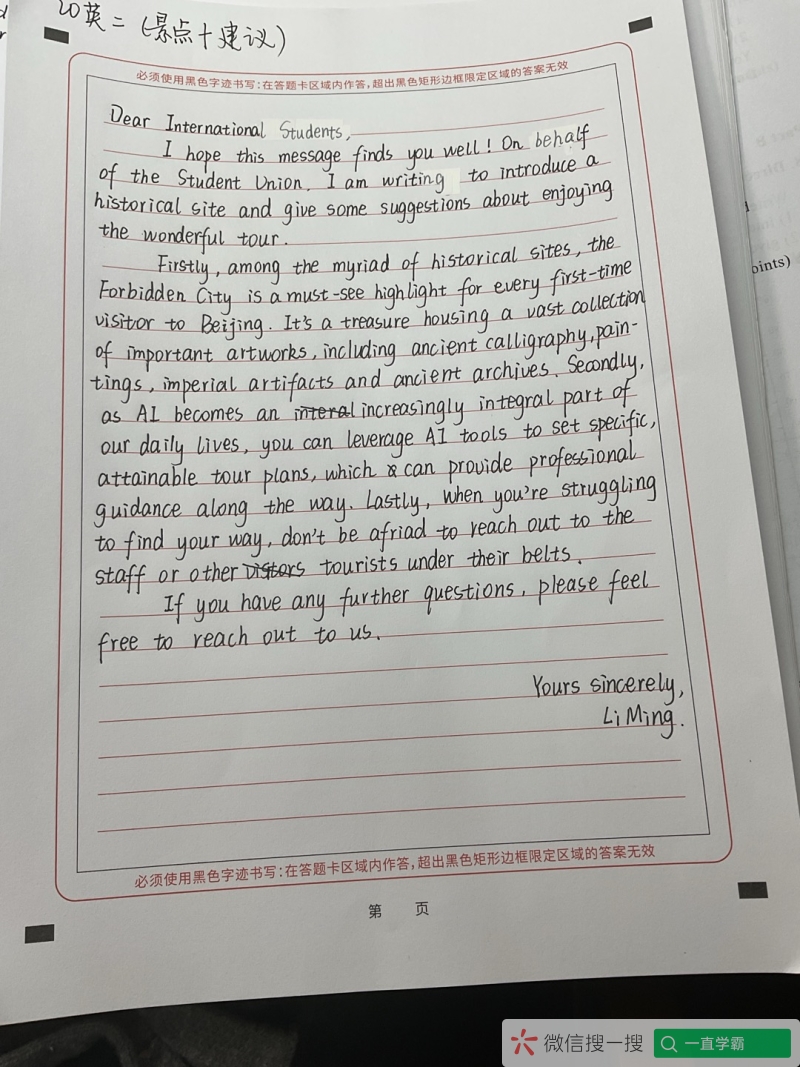 20英二(景点+建议)
必须使用黑色字迹书写:在答题卡区域内作答,超出黑色矩形边框限定区域的答案无效
Dear International Students,
I hope this message finds you well! On behalf
of the Student Union, I am writing to introduce a
historical site and give some suggestions about enjoying
the wonderful tour.
Firstly, among the myriad of historical sites, the
Forbidden City is a must-see highlight for every first-time
visitor to Beijing. It's a treasure housing a vast collection
of important artworks, including ancient calligraphy, pain-
tings, imperial artifacts and ancient archives. Secondly,
as AI becomes an interal increasingly integral part of
our daily lives, you can leverage AI tools to set specific,
attainable tour plans, which can provide professional
guidance along the way. Lastly, when you're struggling
to find your way, don't be afriad to reach out to the
staff or other tourists under their belts.
If you have any further questions, please feel
free to reach out to us.
Yours sincerely,
Li Ming.
必须使用黑色字迹书写:在答题卡区域内作答,超出黑色矩形边框限定区域的答案无效
第 页
oints)
微信搜一搜
一直学霸